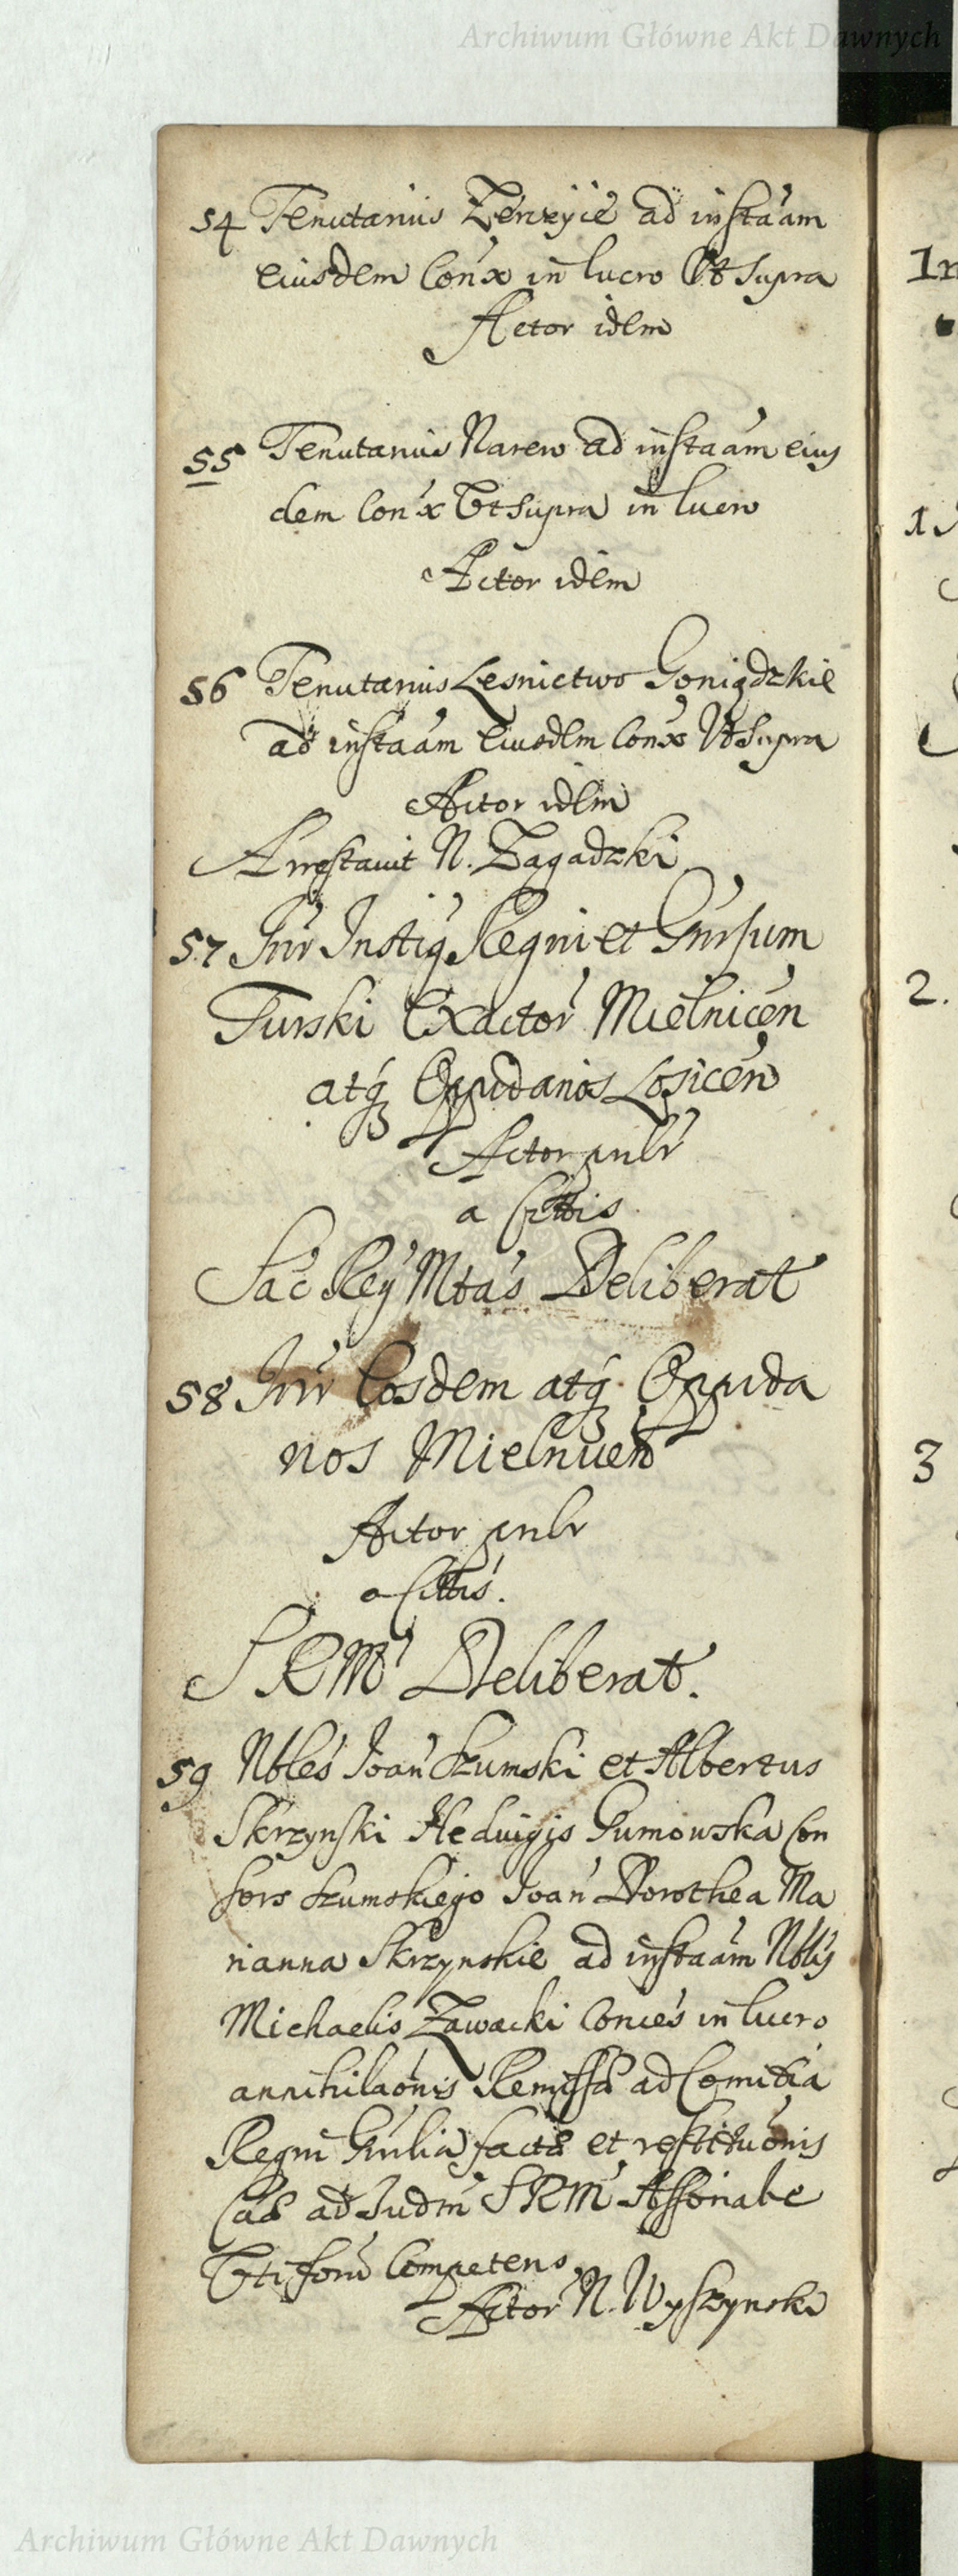 Archiwum Główne Akt Dawnych
54 Tenutarius Zerszyie ad instaam
eiusdem Con'x in lucro Vt Supra
Actor idem
55 Tenutarius Narew ad instaam eius
dem Con'x Vt Supra in lucro
Actor idem
56 Tenutarius Lesnictwo Goniądzkie
ad instaam Eiusdem Con'x Vt Supra
Actor idem
Arrestavit N. Zagadzki
57 Inr Instig Regni et Gnrsum
Turski Exactor Mielnicen
atq Oppidanos Losicen
Actor pnlr
a Cittis
Sac Rey Mtas Deliberat
58 Inr Eosdem atq Oppida
nos Mielnicen
Actor pnlr
a Cittis.
S R M Deliberat.
59 Nbles Joan Szumski et Albertus
Skrzynski Heduigis Gumowska Con
sors Szumskiego Joan Dorothea Ma
rianna Skrzynskie ad instaam Nblis
Michaelis Zawacki Conces in lucro
annihilaonis Remissa ad Comitia
Regni Gnlia facta et restituonis
Cas ad Judm S R M Assonale
Vti foru Competens
Actor N. Wyszynski
In
1
2.
3
Archiwum Główne Akt Dawnych